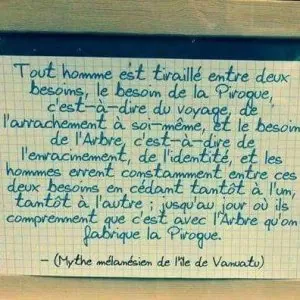 Tout homme est tiraillé entre deux
besoins, le besoin de la Pirogue,
c'est-à-dire du voyage, de
l'arrachement à soi-même, et le besoin
de l'Arbre, c'est-à-dire de
l'enracinement, de l'identité, et les
hommes errent constamment entre ces
deux besoins en cédant tantôt à l'un,
tantôt à l'autre ; jusqu'au jour où ils
comprennent que c'est avec l'Arbre qu'on
fabrique la Pirogue.
- (Mythe mélanésien de l'île de Vanuatu)